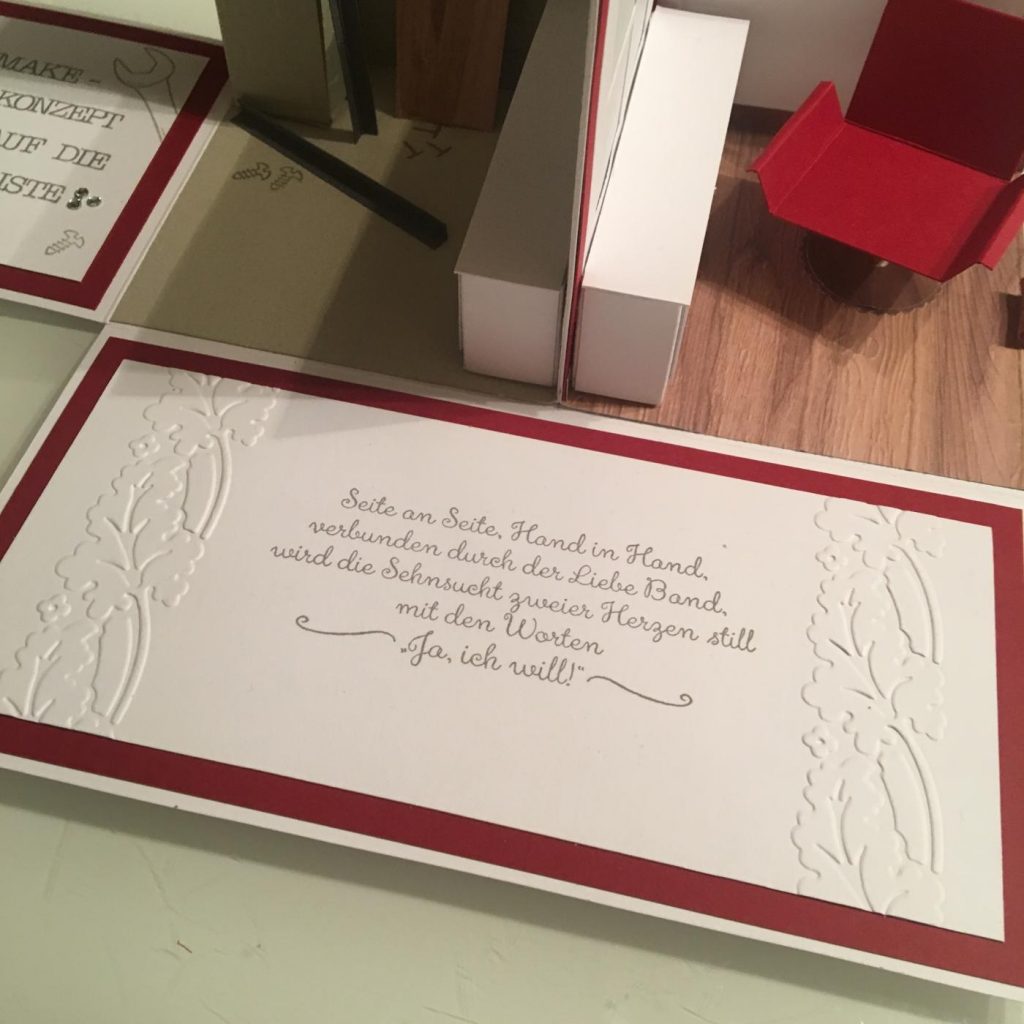 MAKE-
KONZEPT
AUF DIE
Seite an Seite, Hand in Hand,
verbunden durch der Liebe Band,
wird die Sehnsucht zweier Herzen still
mit den Worten
„Ja, ich will!“